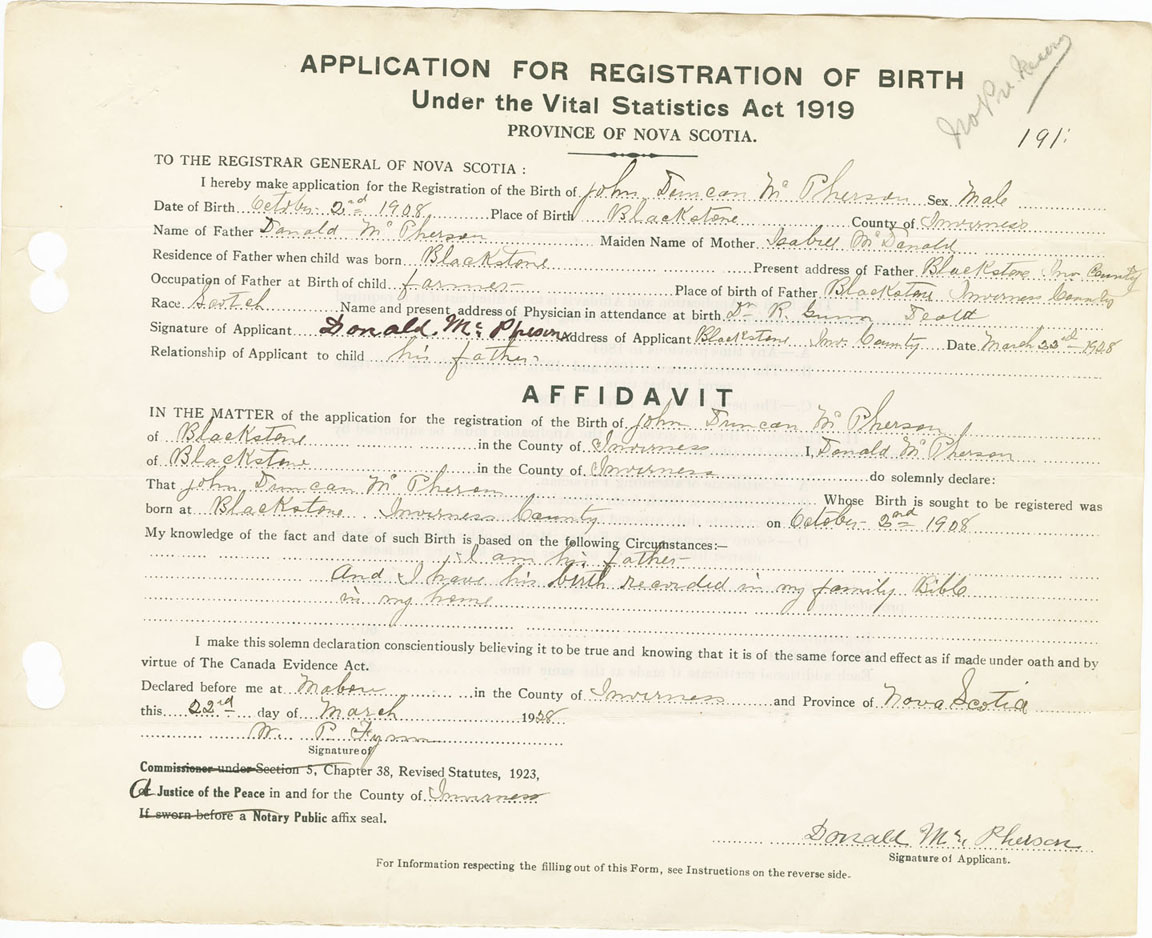 APPLICATION FOR REGISTRATION OF BIRTH
Under the Vital Statistics Act 1919
PROVINCE OF NOVA SCOTIA.
191
TO THE REGISTRAR GENERAL OF NOVA SCOTIA:
I hereby make application for the Registration of the Birth of John Duncan Mc Pherson Sex Male
Date of Birth October 2nd 1908 Place of Birth Blackstone County of Inverness
Name of Father Donald Mc Pherson Maiden Name of Mother Isabell McDonald
Residence of Father when child was born Blackstone Present address of Father Blackstone Inv County
Occupation of Father at Birth of child farmer Place of birth of Father Blackstone Inverness County
Race Scotch Name and present address of Physician in attendance at birth Dr R. Gunn
Signature of Applicant Donald Mc Pherson Address of Applicant Blackstone Inv. County Date March 1928
Relationship of Applicant to child his father
AFFIDAVIT
IN THE MATTER of the application for the registration of the Birth of John Duncan Mc Pherson
of Blackstone in the County of Inverness I, Donald Mc Pherson
of Blackstone in the County of Inverness do solemnly declare:
That John Duncan Mc Pherson Whose Birth is sought to be registered was
born at Blackstone Inverness County on October 1908
My knowledge of the fact and date of such Birth is based on the following Circumstances:—
I am his father
And I have his birth recorded in my family Bible
in my home
I make this solemn declaration conscientiously believing it to be true and knowing that it is of the same force and effect as if made under oath and by
virtue of The Canada Evidence Act.
Declared before me at Mabou in the County of Inverness and Province of Nova Scotia
this 22nd day of March 1928
W. P.
Signature of
Commissioner under Section 5, Chapter 38, Revised Statutes, 1923,
A Justice of the Peace in and for the County of Inverness
If sworn before a Notary Public affix seal.
Donald Mc Pherson
Signature of Applicant.
For Information respecting the filling out of this Form, see Instructions on the reverse side.